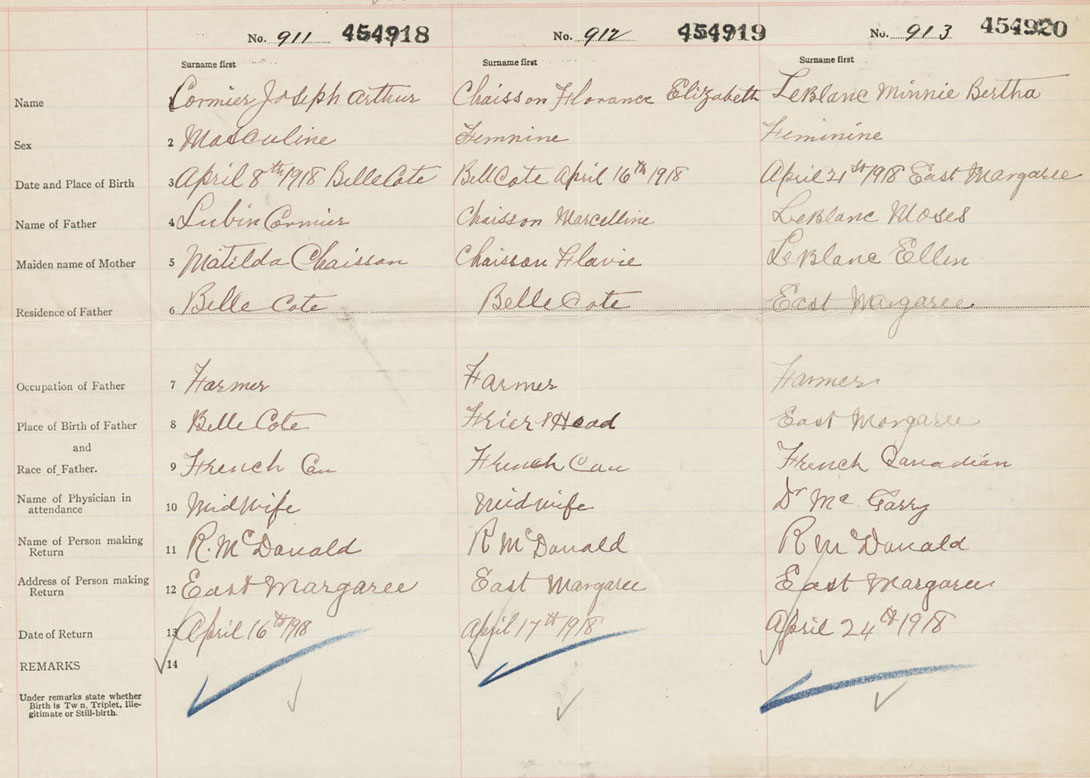 No. 911 454918 No. 912 454919 No. 913 454920
Surname first Surname first Surname first
Name Cormier Joseph Arthur Chaisson Florance Elizabeth LeBlanc Minnie Bertha
Sex 2 Masculine Femnine Feminine
Date and Place of Birth 3 April 8th 1918 Belle Cote Bell Cote April 16th 1918 April 21st 1918 East Margaree
Name of Father 4 Lubin Cormier Chaisson Marcelline LeBlanc Moses
Maiden name of Mother 5 Matilda Chaisson Chaisson Flavie LeBlanc Ellen
Residence of Father 6 Belle Cote Belle Cote East Margaree
Occupation of Father 7 Farmer Farmer Farmer
Place of Birth of Father 8 Belle Cote Frier's Head East Margaree
and
Race of Father. 9 French Can French Can French Canadian
Name of Physician in
attendance 10 Midwife Midwife Dr Mc Garry
Name of Person making
Return 11 R. McDonald R McDonald R McDonald
Address of Person making
Return 12 East Margaree East Margaree East Margaree
Date of Return 13 April 16th 1918 April 17th 1918 April 24th 1918
REMARKS 14
Under remarks state whether
Birth is Tw n, Triplet, Ille-
gitimate or Still-birth.